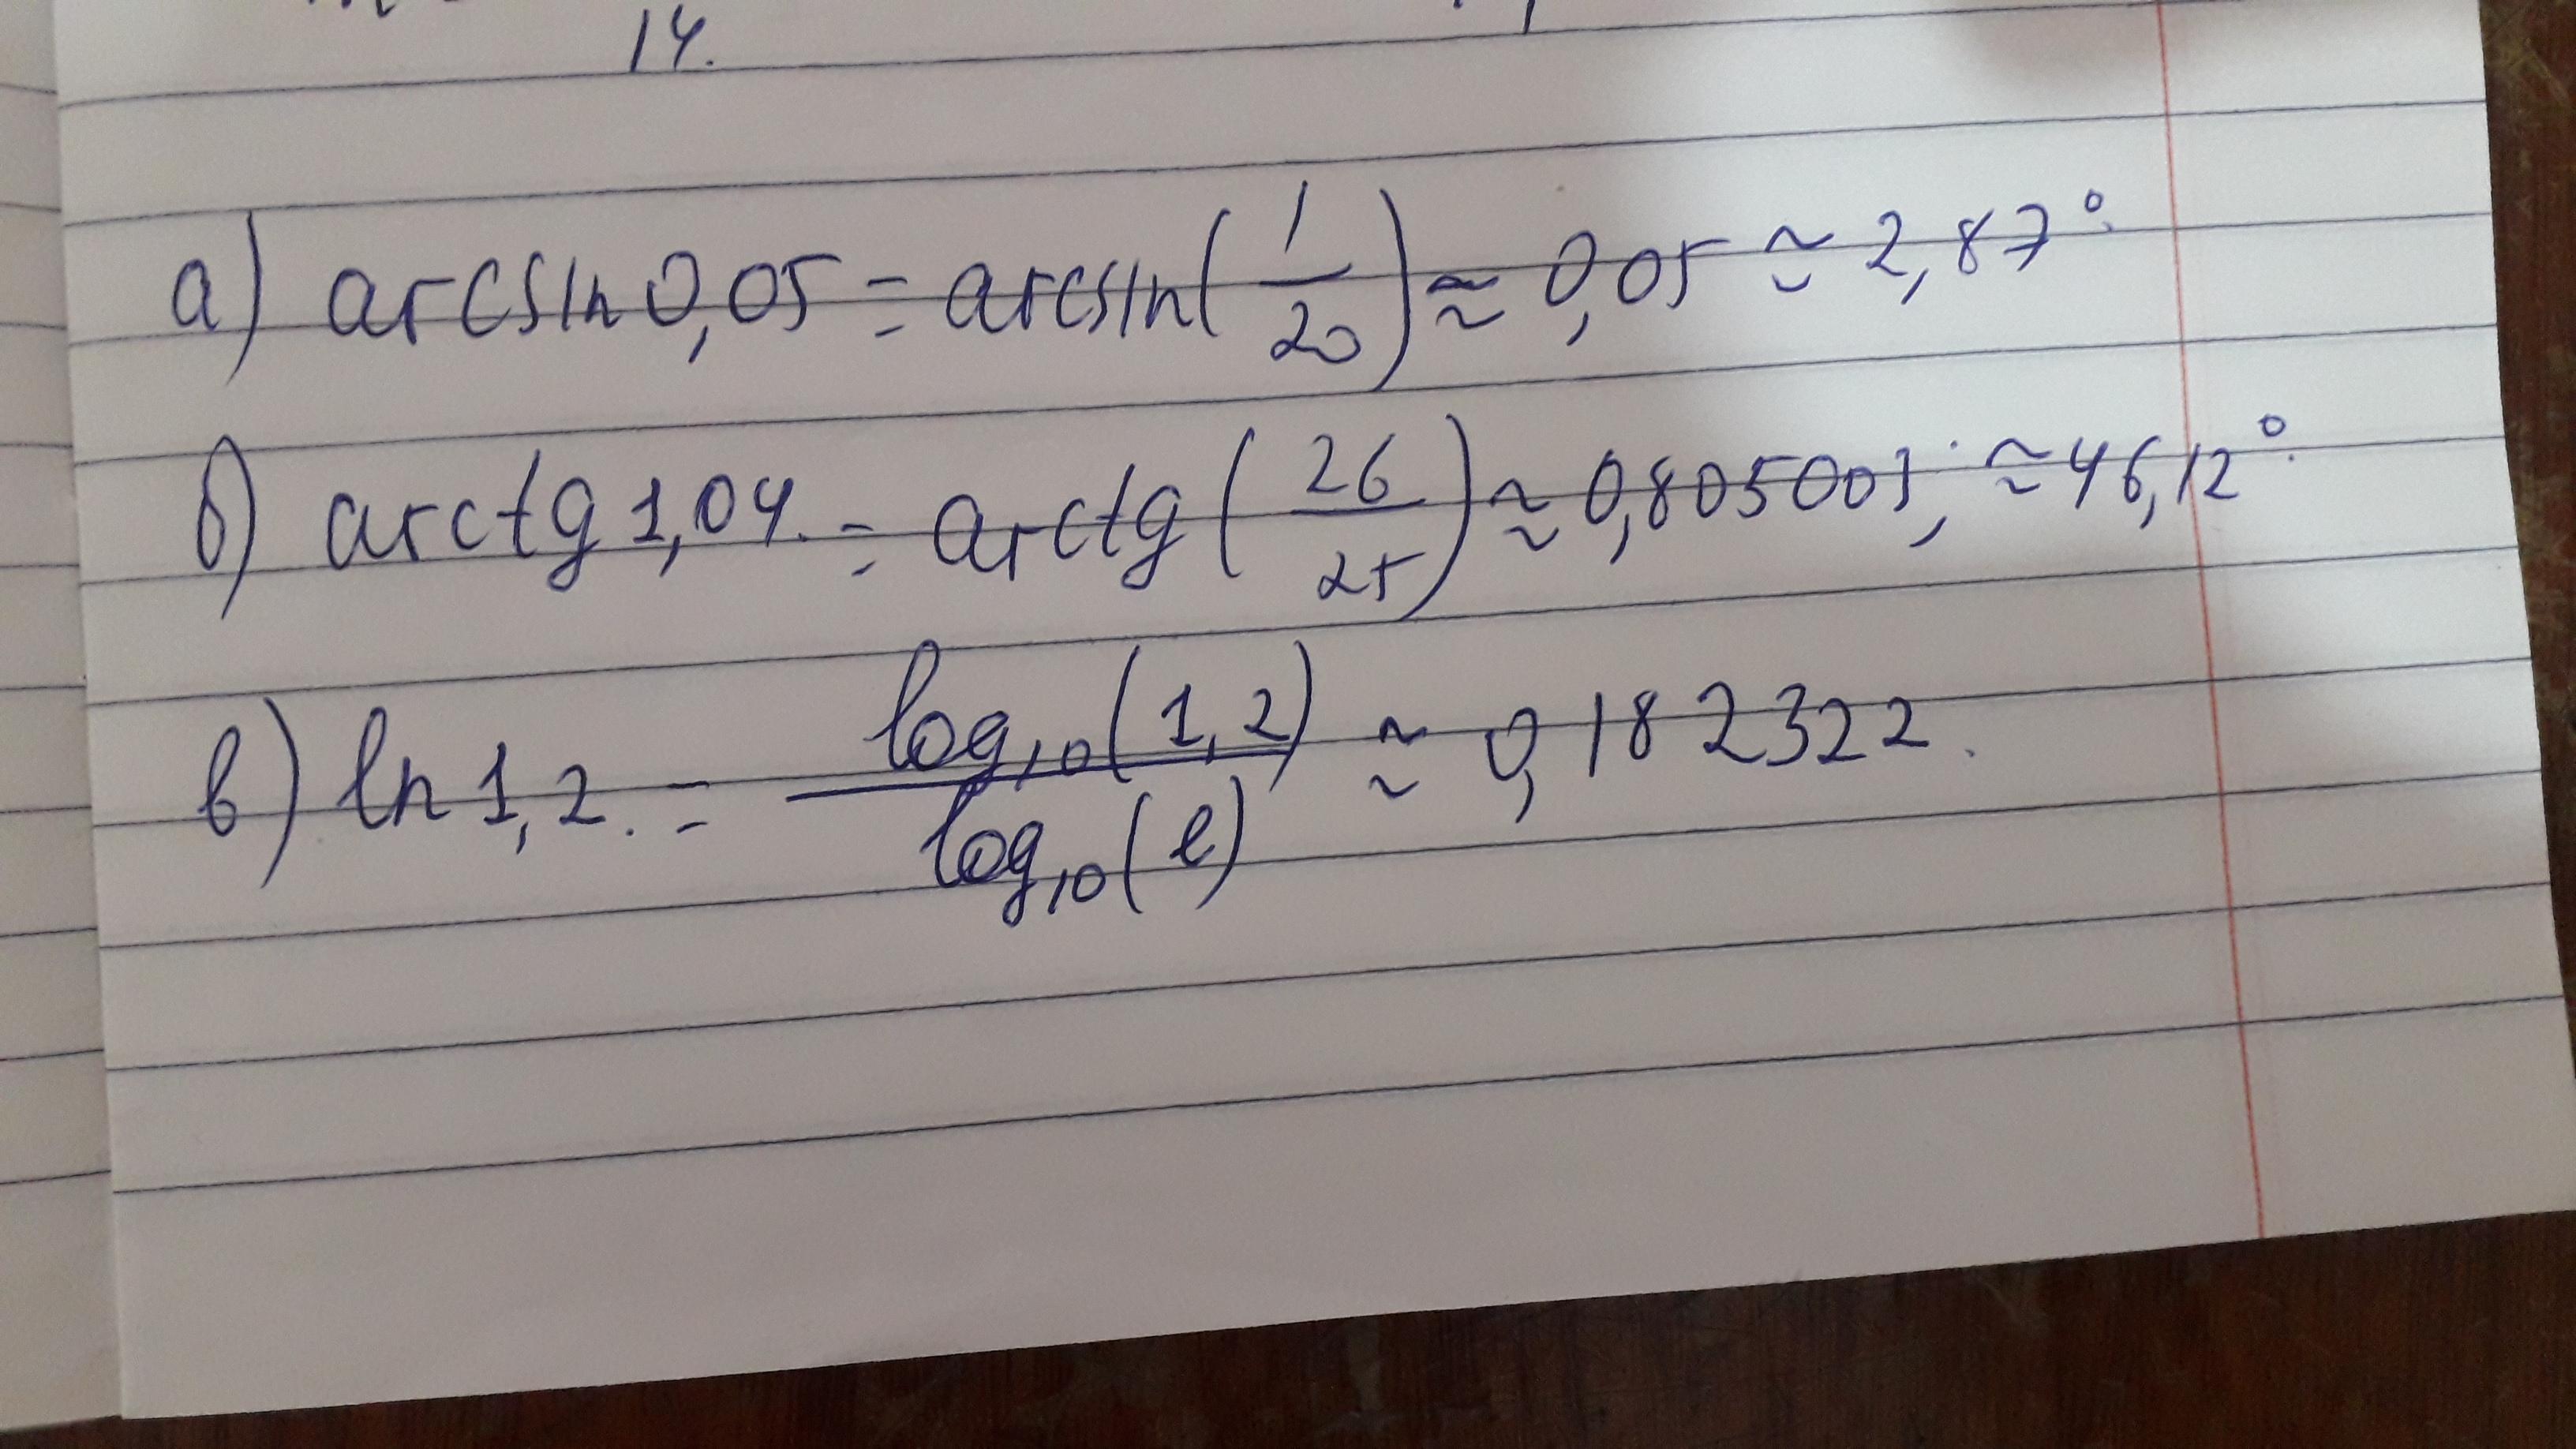 14.
а) arcsin 0,05 = arcsin(1/20) ≈ 0,05 ≅ 2,87°.
б) arctg 1,04. = arctg(26/25) ≈ 0,805003; ≈ 46,12°.
в) ln 1,2. = log₁₀(1,2)/log₁₀(e) ≈ 0,182322.